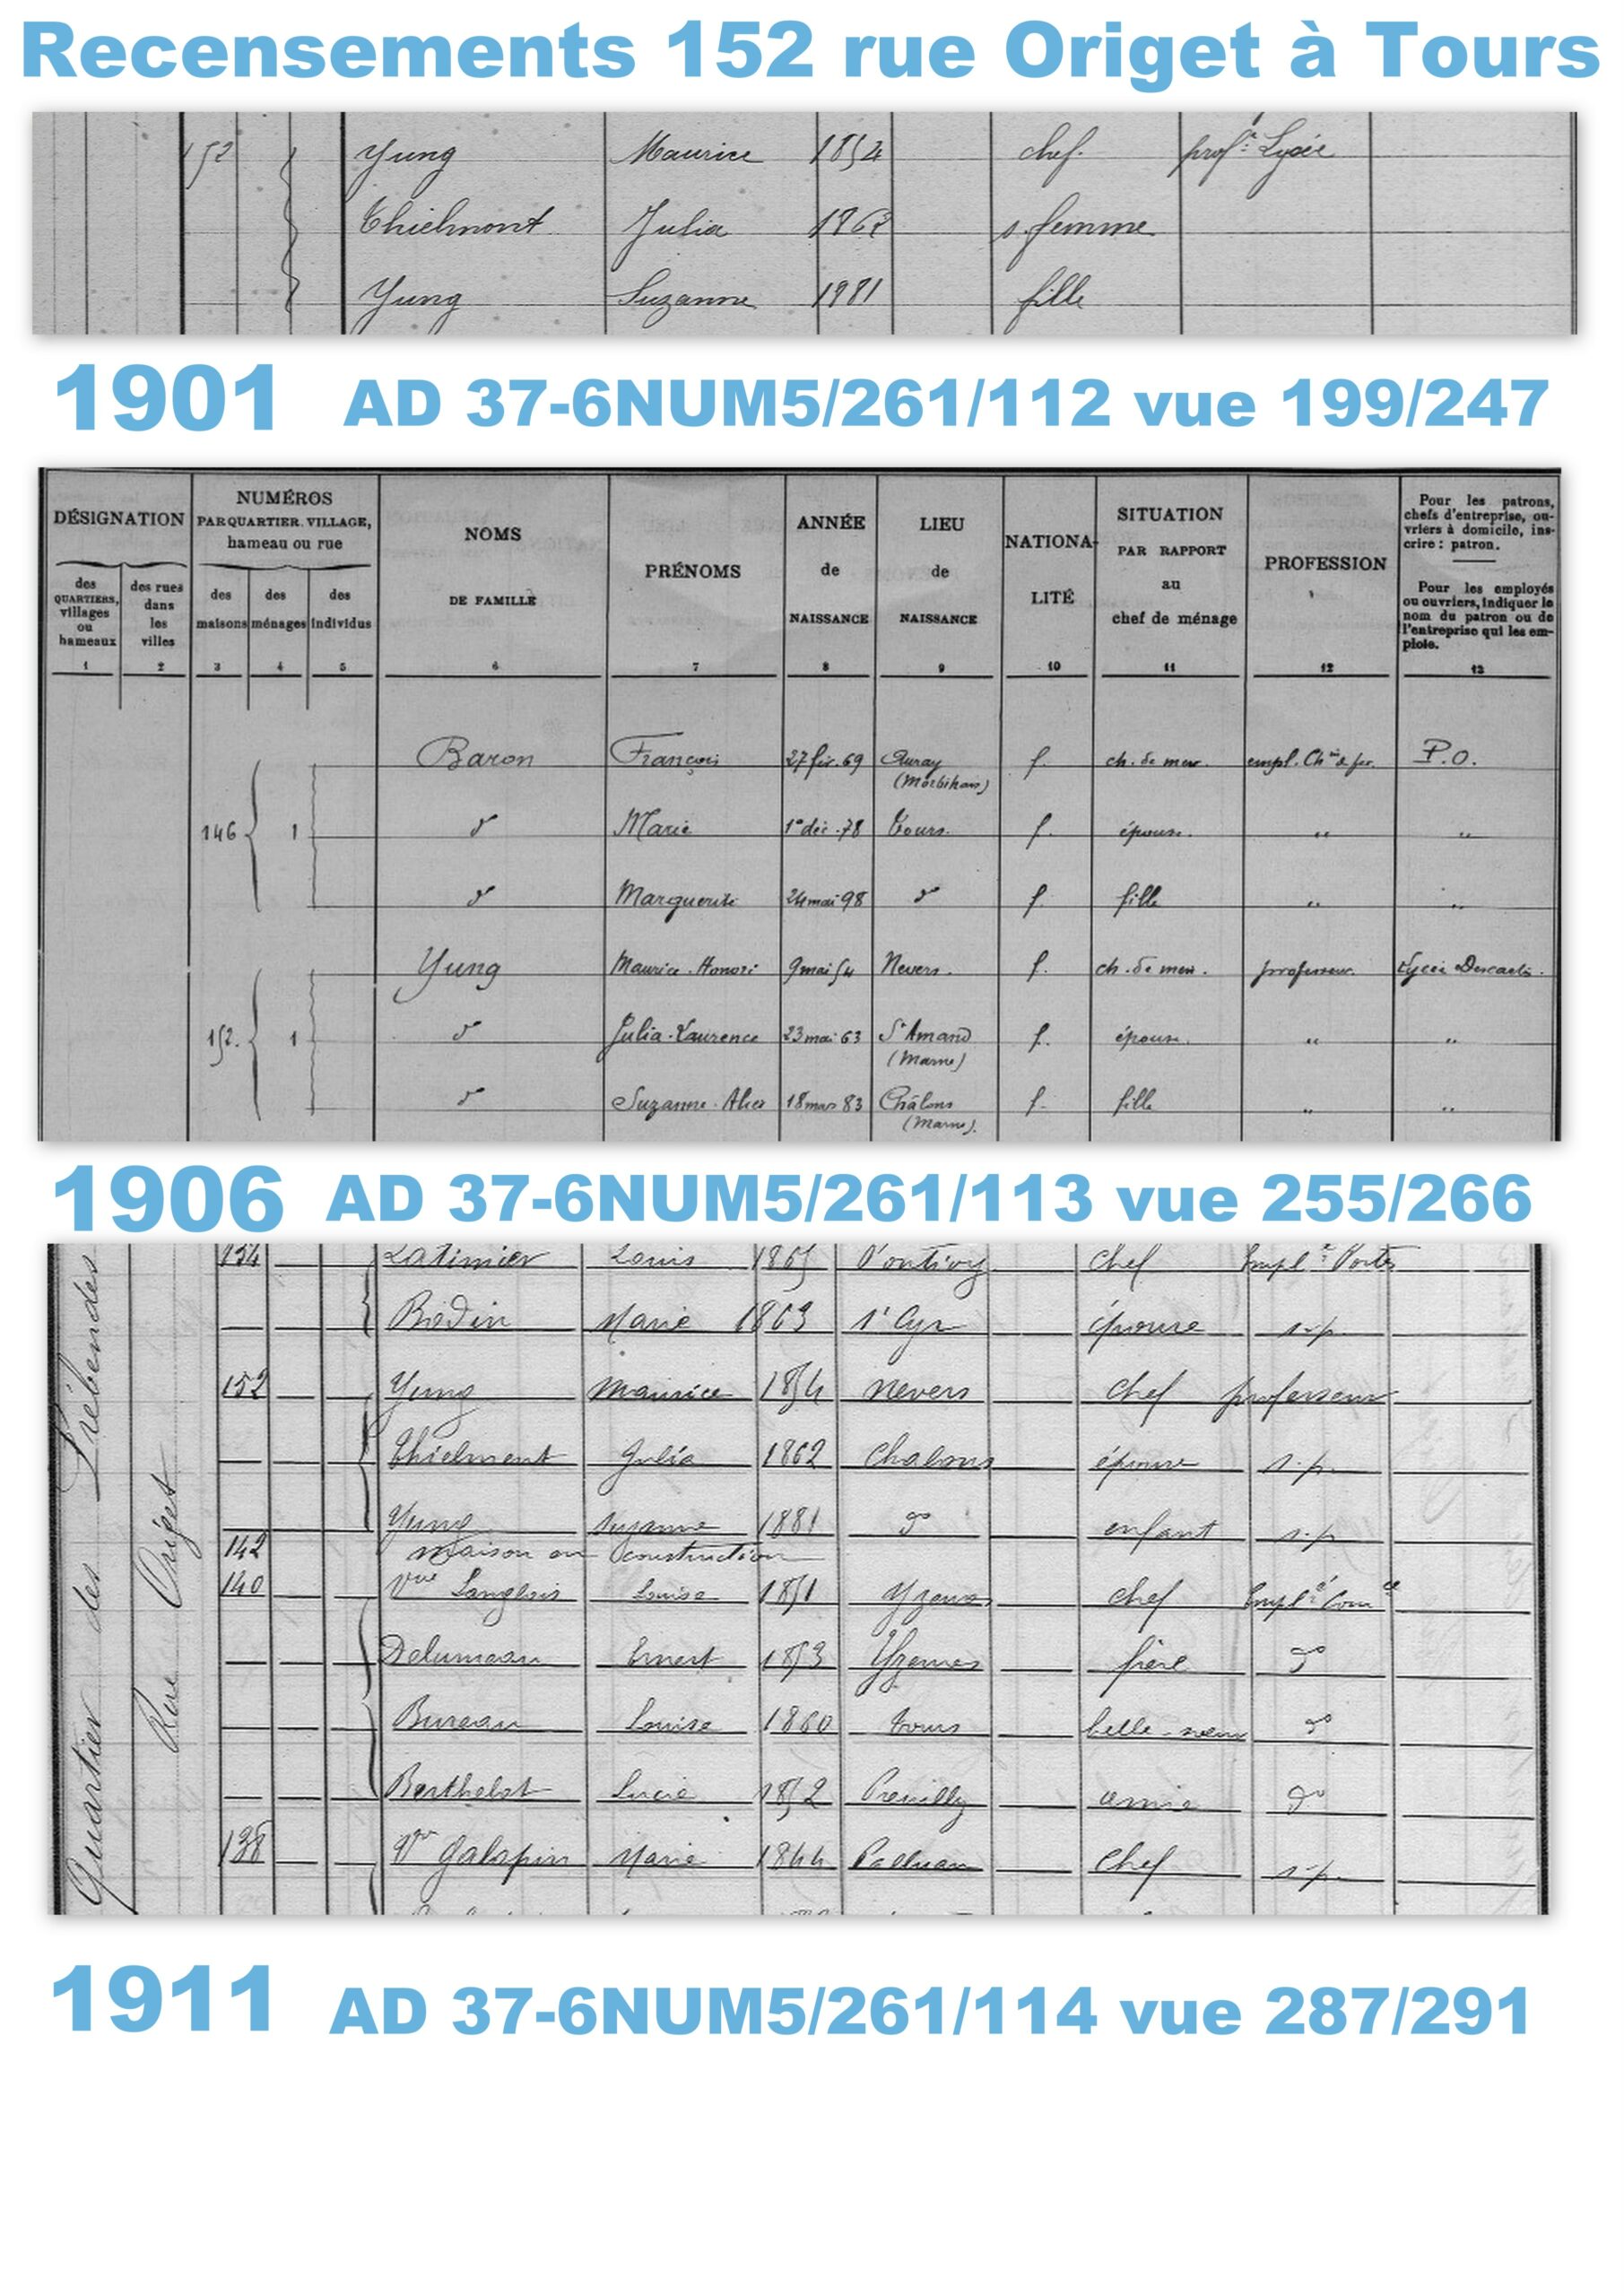 Recensements 152 rue Origet à Tours
152 Yung Maurice 1854 chef. profr Lycée
Thielmont Julia 1862 s. femme
Yung Suzanne 1981 fille
1901 AD 37-6NUM5/261/112 vue 199/247
DÉSIGNATION
des QUARTIERS, villages ou hameaux
1
des rues dans les villes
2
NUMÉROS
PAR QUARTIER. VILLAGE,
hameau ou rue
des maisons
3
des ménages
4
des individus
5
NOMS
DE FAMILLE
6
PRÉNOMS
7
ANNÉE
de
NAISSANCE
8
LIEU
de
NAISSANCE
9
NATIONA-
LITÉ
10
SITUATION
PAR RAPPORT
au
chef de ménage
11
PROFESSION
12
Pour les patrons,
chefs d'entreprise, ou-
vriers à domicile, ins-
crire : patron.
Pour les employés
ou ouvriers, indiquer le
nom du patron ou de
l'entreprise qui les em-
ploie.
13
Baron François 27 fév. 69 Auray (Morbihan) f. ch. de mén. empl. Chin de fer. P.O.
146 1 do Marie 1er déc. 78 Tours. f. épouse. " "
do Marguerite 24 mai 98 do f. fille " "
Yung Maurice. Honoré 9 mai 54 Nevers. f. ch. de mén. professeur. Lycée Descartes.
152. 1 do Julia-Laurence 23 mai 63 St Amand (Marne) f. épouse. " "
do Suzanne. Alice 18 mars 83 Châlons (Marne). f. fille " "
1906 AD 37-6NUM5/261/113 vue 255/266
Quartier des Prébendes
Rue Origet
154 Latimier Louis 1865 Pontivy chef Emplé Postes
Bédin Marie 1863 St Cyr épouse s.p.
152 Yung Maurice 1854 Nevers chef professeur
Thielment Julia 1862 Chalons épouse s.p.
Yung Suzanne 1881 do enfant s.p
142 Maison en construction
140 Vve Langlois Louise 1851 chef Emplé Comce
Delumeau Ernest 1853 frère do
Bureau Louise 1860 Tours belle-soeur do
Berthelot Lucie 1852 Preuilly amie do
138 Vve Galopin Marie 1844 Palluau chef s.p.
1911 AD 37-6NUM5/261/114 vue 287/291